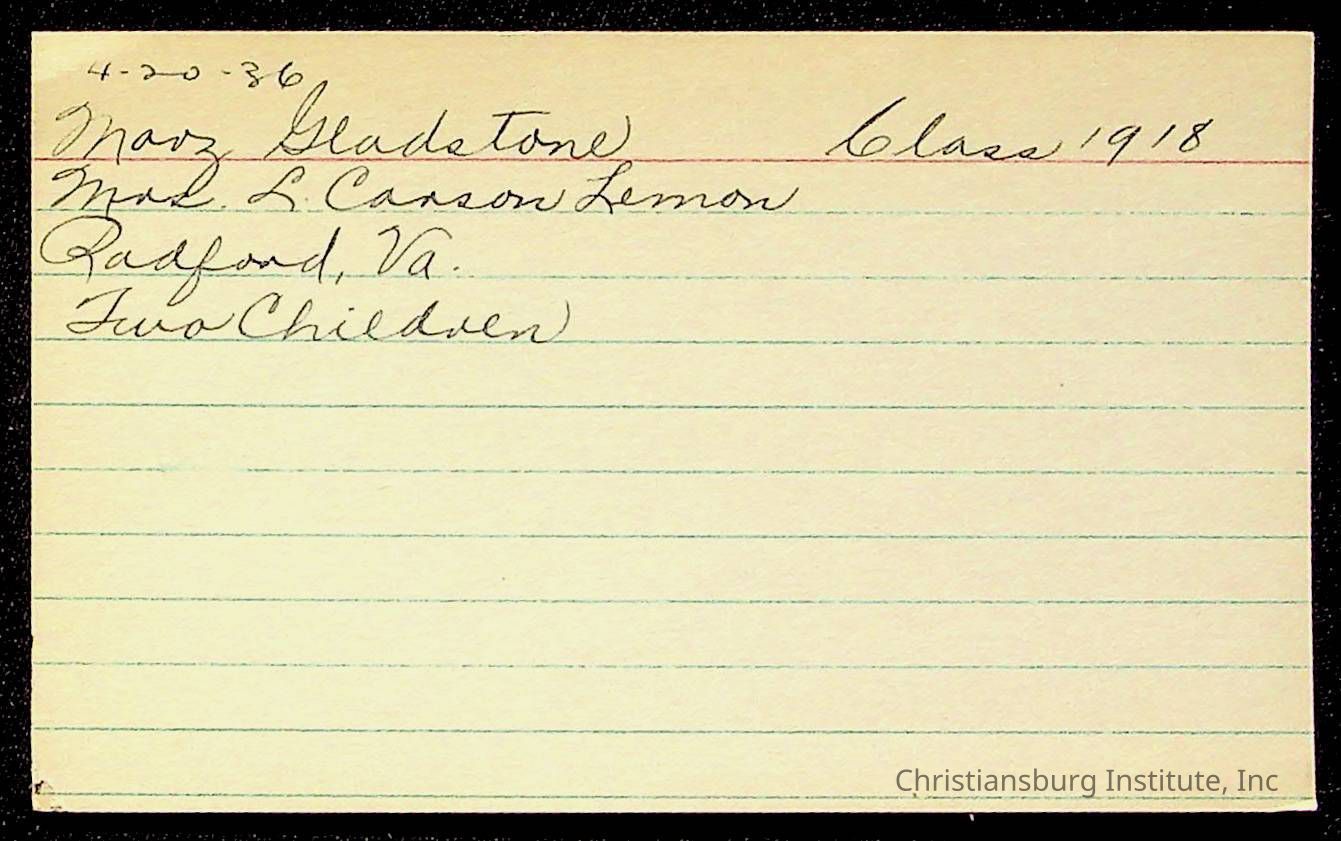 4-20-36
Mary Gladstone Class 1918
Mrs. L. Carson Lemon
Radford, Va.
Two Children
Christiansburg Institute, Inc